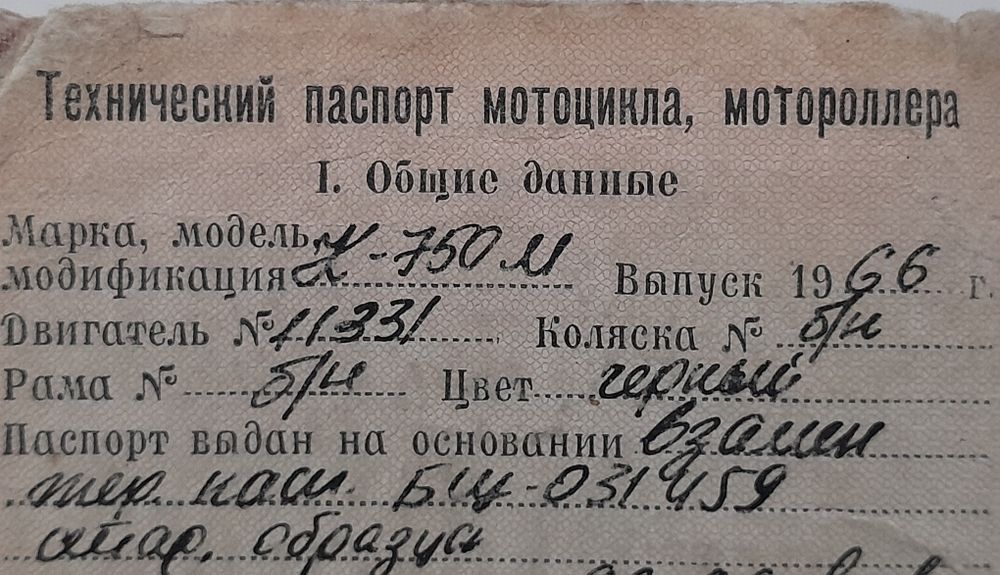 Технический паспорт мотоцикла, мотороллера
I. Общие данные
Марка, модель,
модификация К-750 М Выпуск 1966 г.
Двигатель № 11331 Коляска № б/н
Рама № б/н Цвет черный
Паспорт выдан на основании взамен
тех. пасп. БЦ-031459
стар. образца